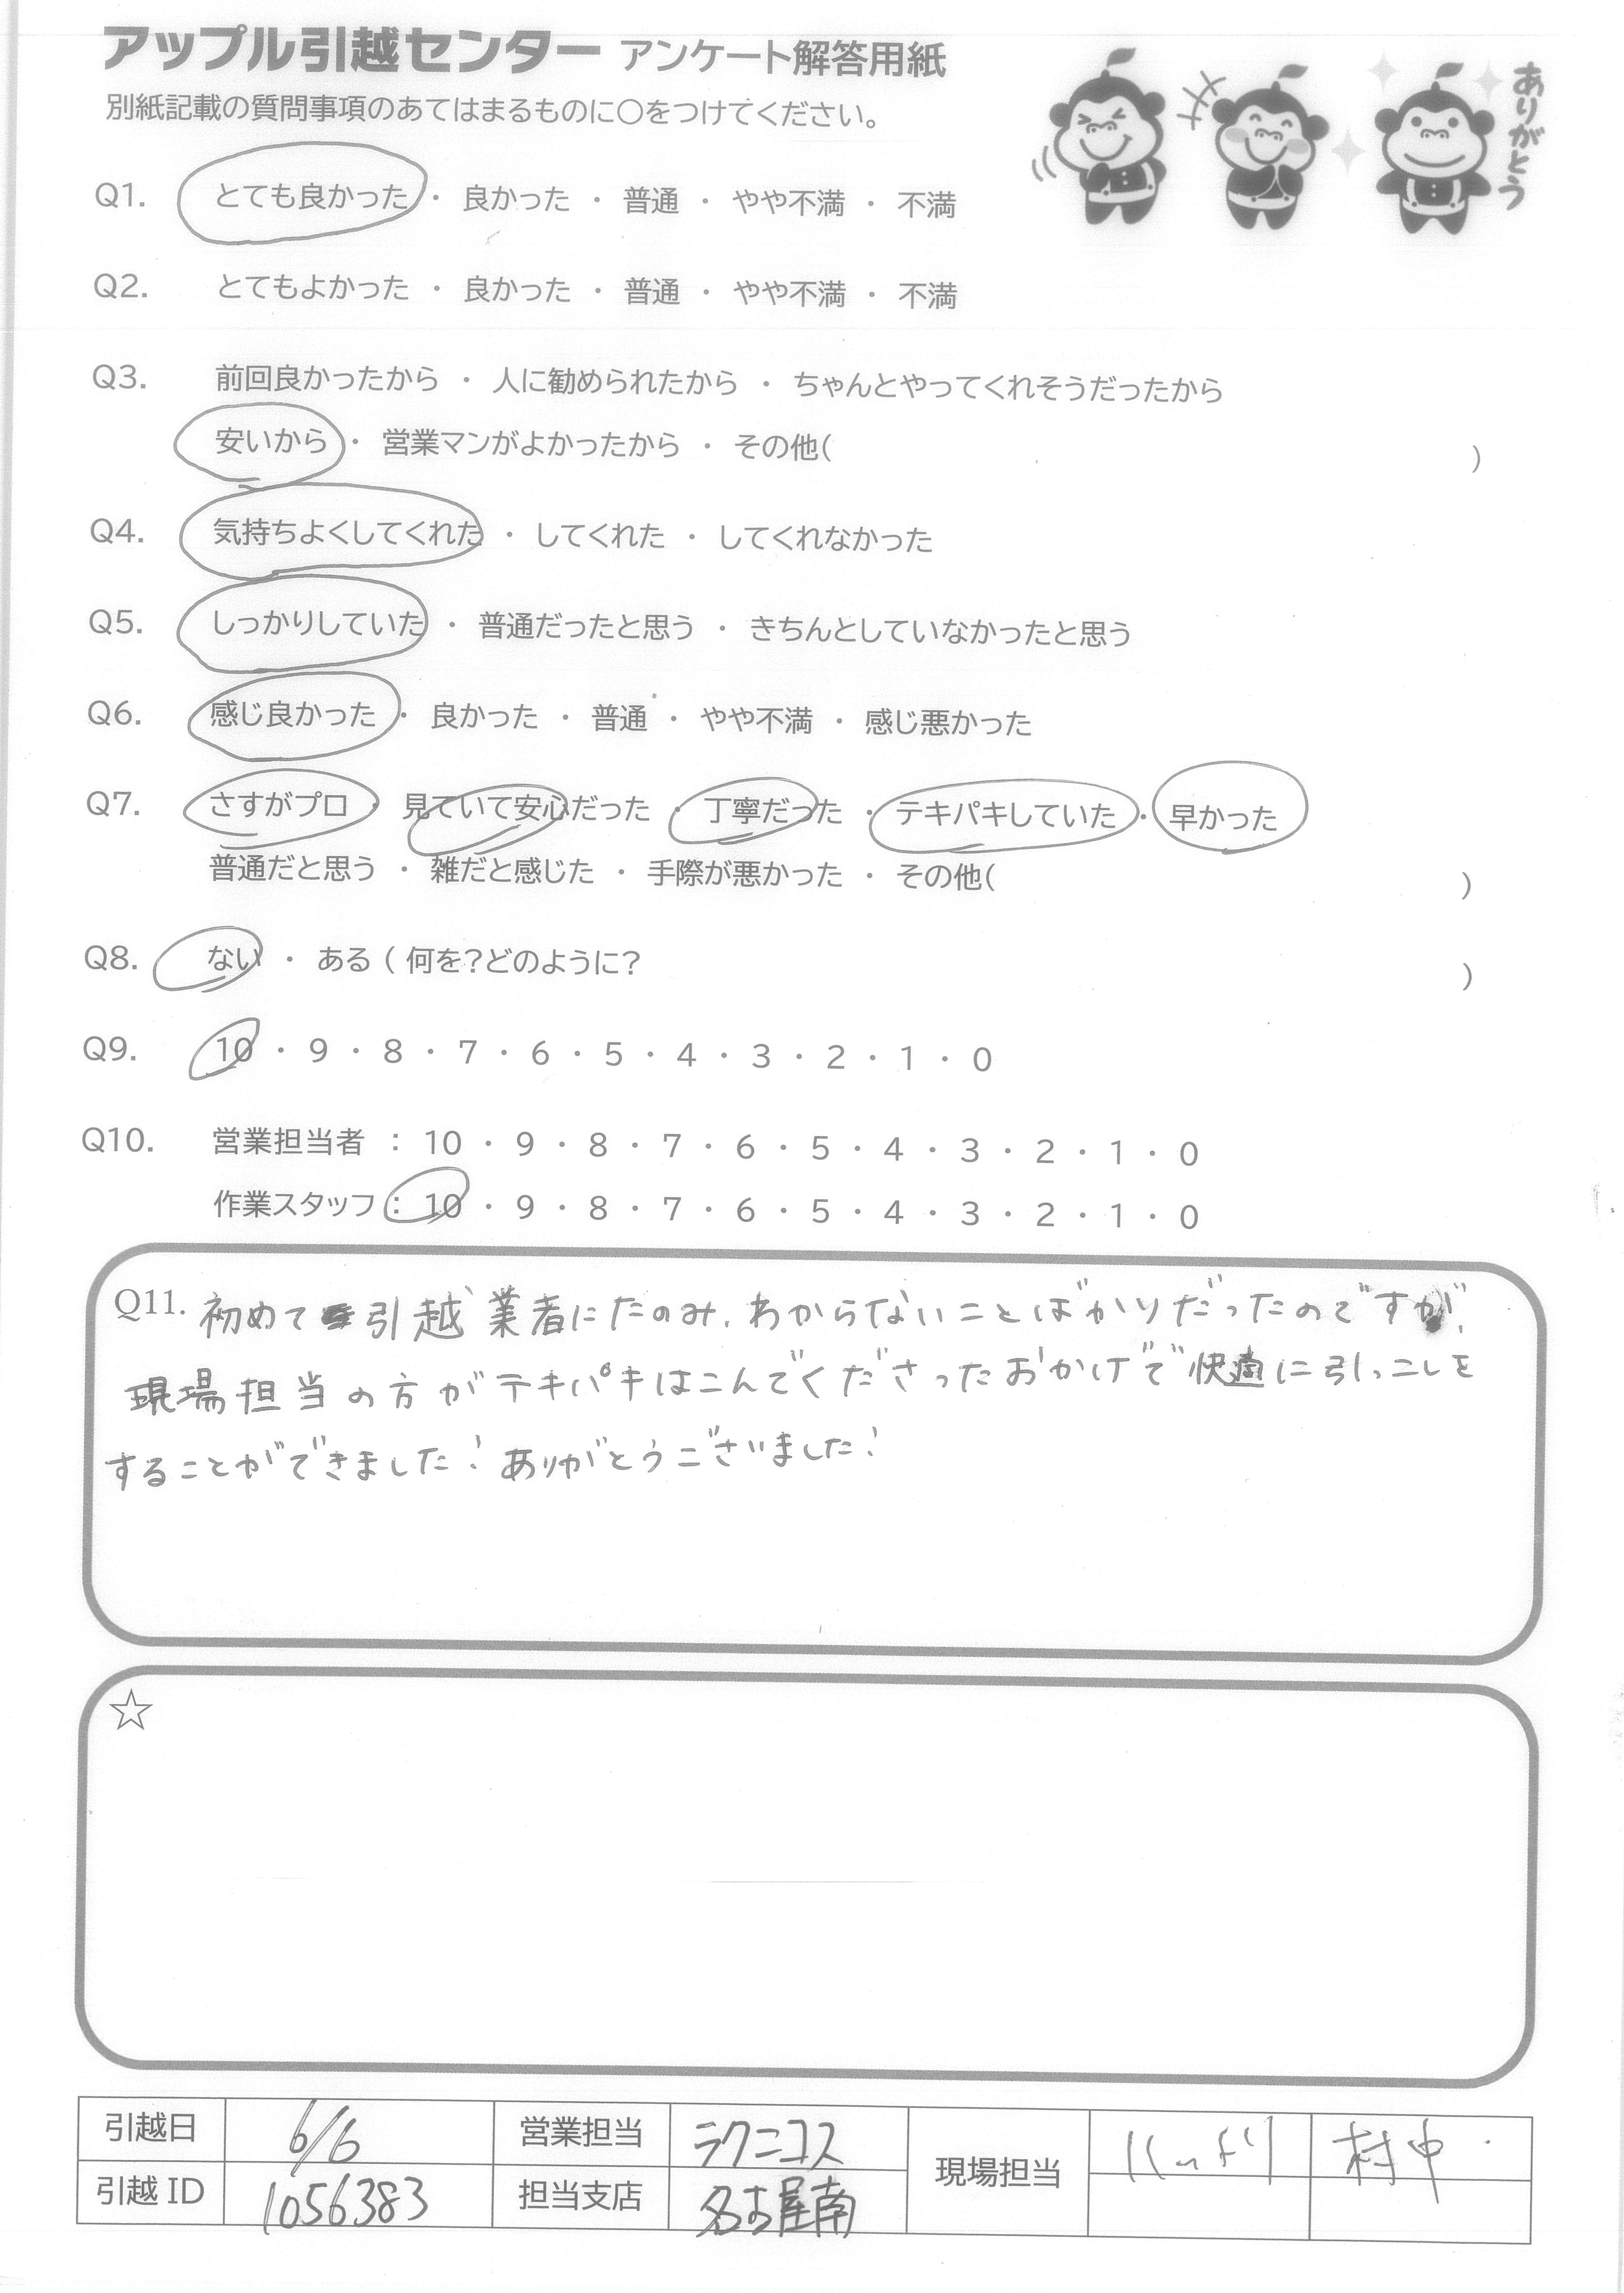 アップル引越センター アンケート解答用紙
ありがとう
別紙記載の質問事項のあてはまるものに○をつけてください。
Q1. とても良かった ・ 良かった ・ 普通 ・ やや不満 ・ 不満
Q2. とてもよかった ・ 良かった ・ 普通 ・ やや不満 ・ 不満
Q3. 前回良かったから ・ 人に勧められたから ・ ちゃんとやってくれそうだったから
安いから ・ 営業マンがよかったから ・ その他( )
Q4. 気持ちよくしてくれた ・ してくれた ・ してくれなかった
Q5. しっかりしていた ・ 普通だったと思う ・ きちんとしていなかったと思う
Q6. 感じ良かった ・ 良かった ・ 普通 ・ やや不満 ・ 感じ悪かった
Q7. さすがプロ ・ 見ていて安心だった ・ 丁寧だった ・ テキパキしていた ・ 早かった
普通だと思う ・ 雑だと感じた ・ 手際が悪かった ・ その他( )
Q8. ない ・ ある ( 何を?どのように? )
Q9. 10 ・ 9 ・ 8 ・ 7 ・ 6 ・ 5 ・ 4 ・ 3 ・ 2 ・ 1 ・ 0
Q10. 営業担当者 : 10 ・ 9 ・ 8 ・ 7 ・ 6 ・ 5 ・ 4 ・ 3 ・ 2 ・ 1 ・ 0
作業スタッフ : 10 ・ 9 ・ 8 ・ 7 ・ 6 ・ 5 ・ 4 ・ 3 ・ 2 ・ 1 ・ 0
Q11. 初めて引越業者にたのみ、わからないことばかりだったのですが、
現場担当の方がテキパキはこんでくださったおかげで快適に引っこしを
することができました!ありがとうございました!
☆
引越日 6/6 営業担当 ラクニコス 現場担当 村中
引越 ID 1056383 担当支店 名古屋南